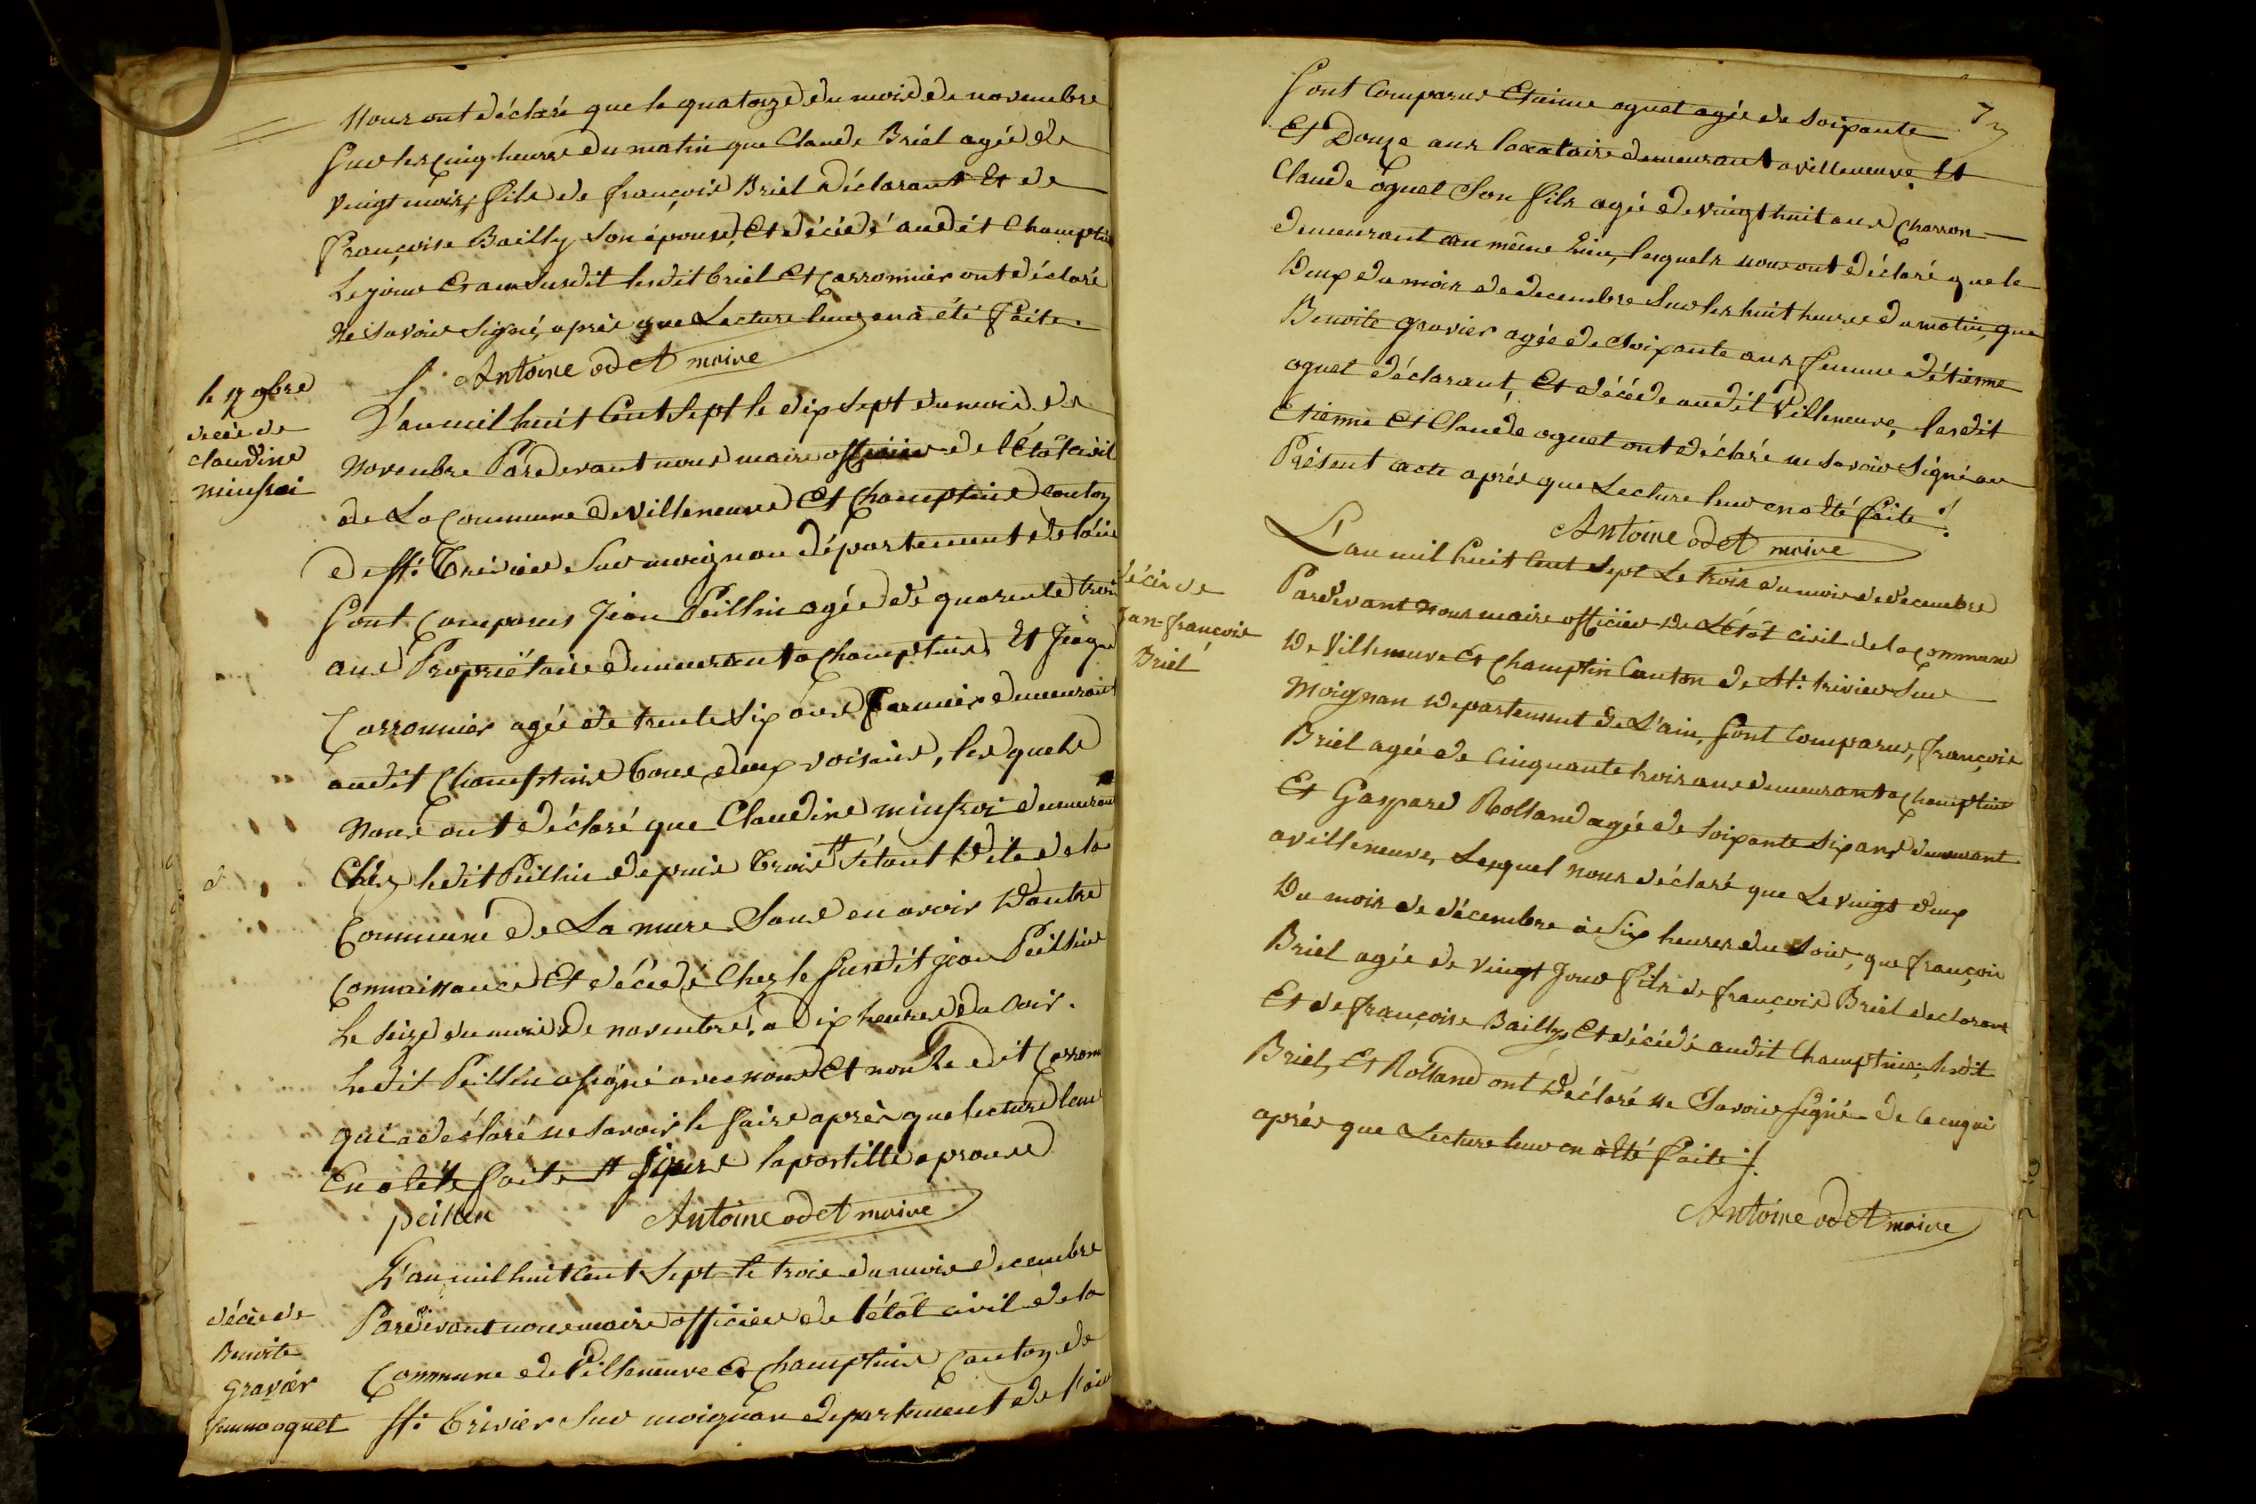 Nous ont déclaré que le quatorze du mois de novembre
Sur les cinq heures du matin que Claude Briel agée de
vingt mois, fils de françois Briel déclarant Et de
françoise Bailly son épouse, Et décédé audit Champtin
Le jour Et an susdit lesdit briel Et Carronnier ont déclaré
ne savoir signé, après que Lecture leur en à été faite
Antoine odet maire
le 17 9bre
décès de
claudine
L'an mil huit Cent sept le dix sept du mois de
novembre Pardevant nous maire officier de l'état civil
de La Commune de villeneuve Et Champtin Canton
de St. Trivier sur moignan département de l'ain
sont Comparus Jean Peillin agée de quarente trois
ans Propriétaire demeurant a Champtin, Et
Carronnier agée de trente six ans fermier demeurant
audit Champtin tous deux voisins, les quels
nous ont déclaré que Claudine demeurant
Chez ledit Peillin depuis trois # s'étant dite de la
Commune de La mure Sans en avoir d'autre
Connaissance Et décédé Chez le susdit jean Peillin
le seize du mois de novembre, a dix heures du soir.
ledit Peillin a signé avec nous Et non Le dit Carronnier
qui a déclaré ne savoir le faire après que lecture leur
En a été faite # jours lapostille aprouvé
peillin Antoine odet maire
décès de
Benoite
gravier
femme oguet
L'an mil huit Cent sept le trois du mois decembre
Pardevant nous maire officier de l'état civil de la
Commune de Villeneuve Et Champtin Canton de
St. Trivier sur moignan departement de l'ain
73
sont Comparus Etienne oguet agée de soixante
Et Douze ans locataire demeurant a villeneuve, Et
Claude oguet son fils agée de vingt huit ans Charron
demeurant au même lieu, lesquels nous ont déclaré que le
Deux du mois de decembre sur les huit heures du matin, que
Benoite gravier agée de soixante ans femme d'étienne
oguet déclarant, Et décédé audit Villeneuve, lesdit
Etienne Et Claude oguet ont déclaré ne savoir signé au
Présent acte après que Lecture leur en a été faite ./.
Antoine odet maire
décès de
Jan-françois
Briel
L'an mil huit Cent sept Le trois du mois de decembre
Pardevant nous maire officier de L'état civil de la Commune
De Villeneuve Et Champtin Canton de St. trivier sur
Moignan Departement de L'ain, sont Comparus, françois
Briel agée de Cinquante trois ans demeurant a Champtin
Et Gaspard Rolland agée de soixante six ans demeurant
a villeneuve, Lesquel nous déclaré que Le vingt deux
Du mois de décembre à six heures du soir, que françois
Briel agée de vingt jour fils de françois Briel declarant
Et de françoise Bailly, Et décédé audit Champtin, lesdit
Briel, Et Rolland ont Déclaré ne savoir signé de ce enquis
après que Lecture leur en à été faite ./.
Antoine odet maire